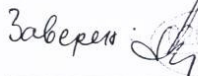 Заверен